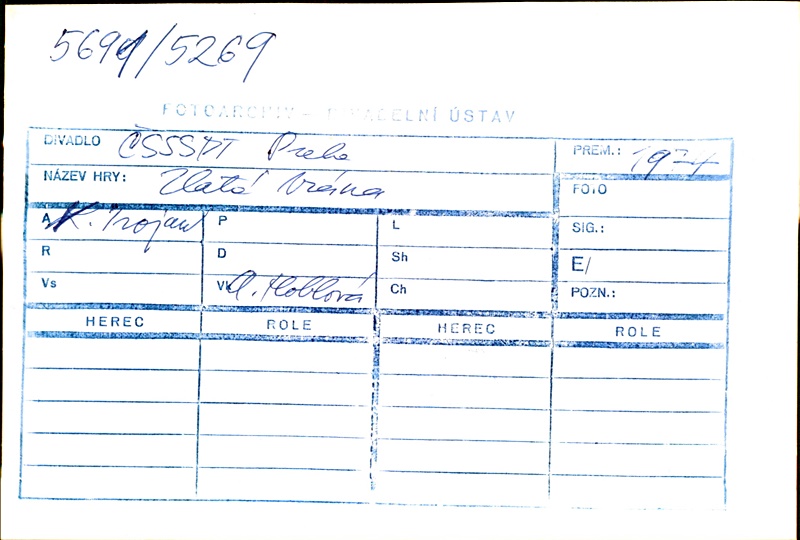 5691/5269
FOTOARCHIV - DIVADELNÍ ÚSTAV
DIVADLO ČSSSPT Praha PREM.: 1974
NÁZEV HRY: Zlatá brána FOTO
A K. Trojan P L SIG.:
R D Sh E/
Vs Vk A. Hoblová Ch POZN.:
HEREC ROLE HEREC ROLE